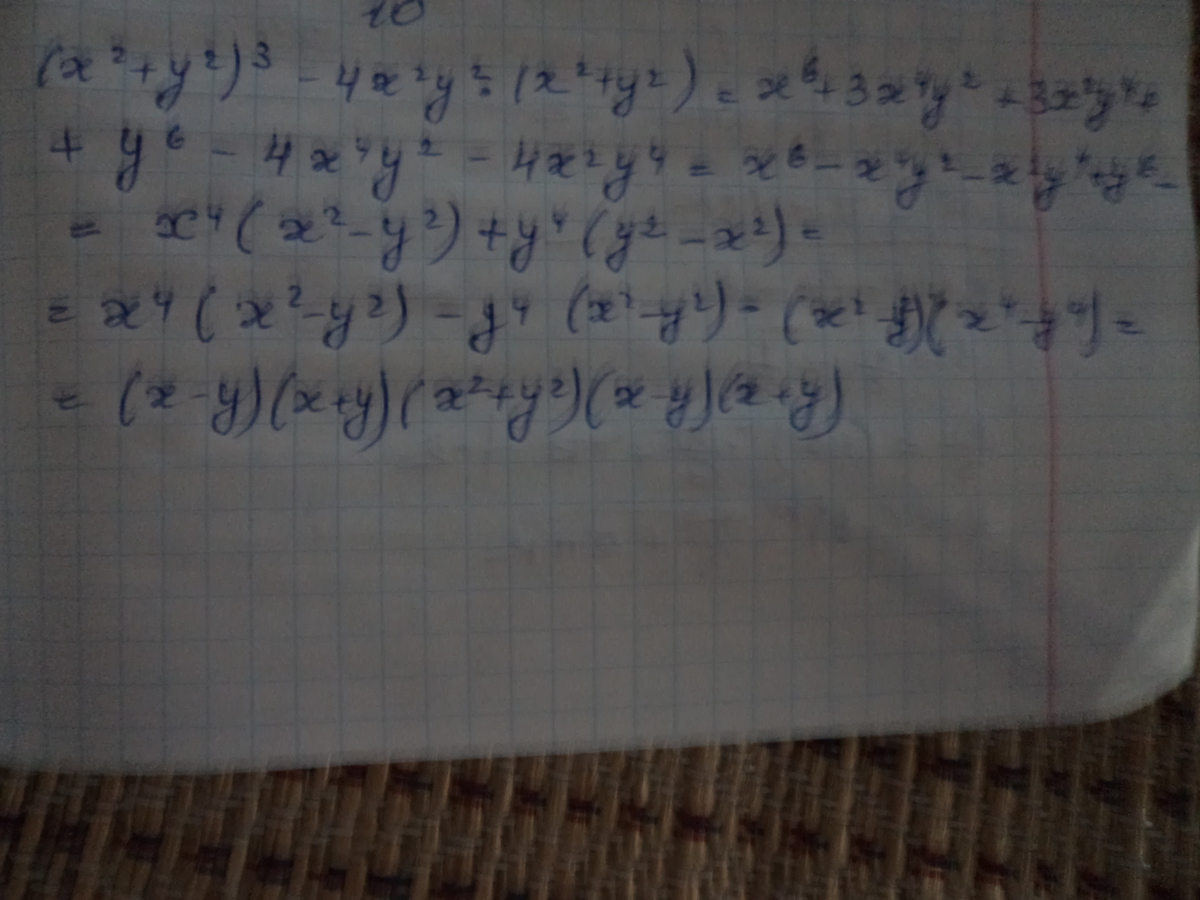 10
(x²+y²)³ - 4x²y² · (x²+y²) = x⁶+3x⁴y² +3x²y⁴+
+ y⁶ - 4x⁴y² - 4x²y⁴ = x⁶-x⁴y²-x²y⁴+y⁶=
= x⁴(x²-y²)+y⁴(y²-x²)=
= x⁴(x²-y²)-y⁴ (x²-y²)= (x²-y²)(x⁴-y⁴)=
= (x-y)(x+y)(x²+y²)(x-y)(x+y)